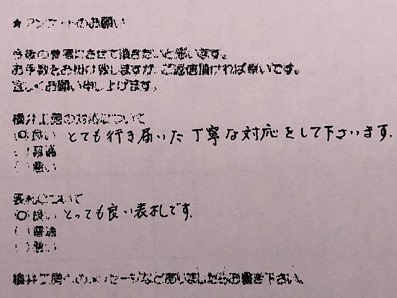 ★アンケートのお願い
今後の参考にさせて頂きたいと思います。
お手数をお掛け致しますが、ご返信頂ければ幸いです。
宜しくお願い申し上げます。
横井工房の対応について
(○)良い とても行き届いた丁寧な対応をして下さいます.
( )普通
( )悪い
表札について
(○)良い とっても良い表札です.
( )普通
( )悪い
横井工房へのメッセージなどありましたらお書き下さい。